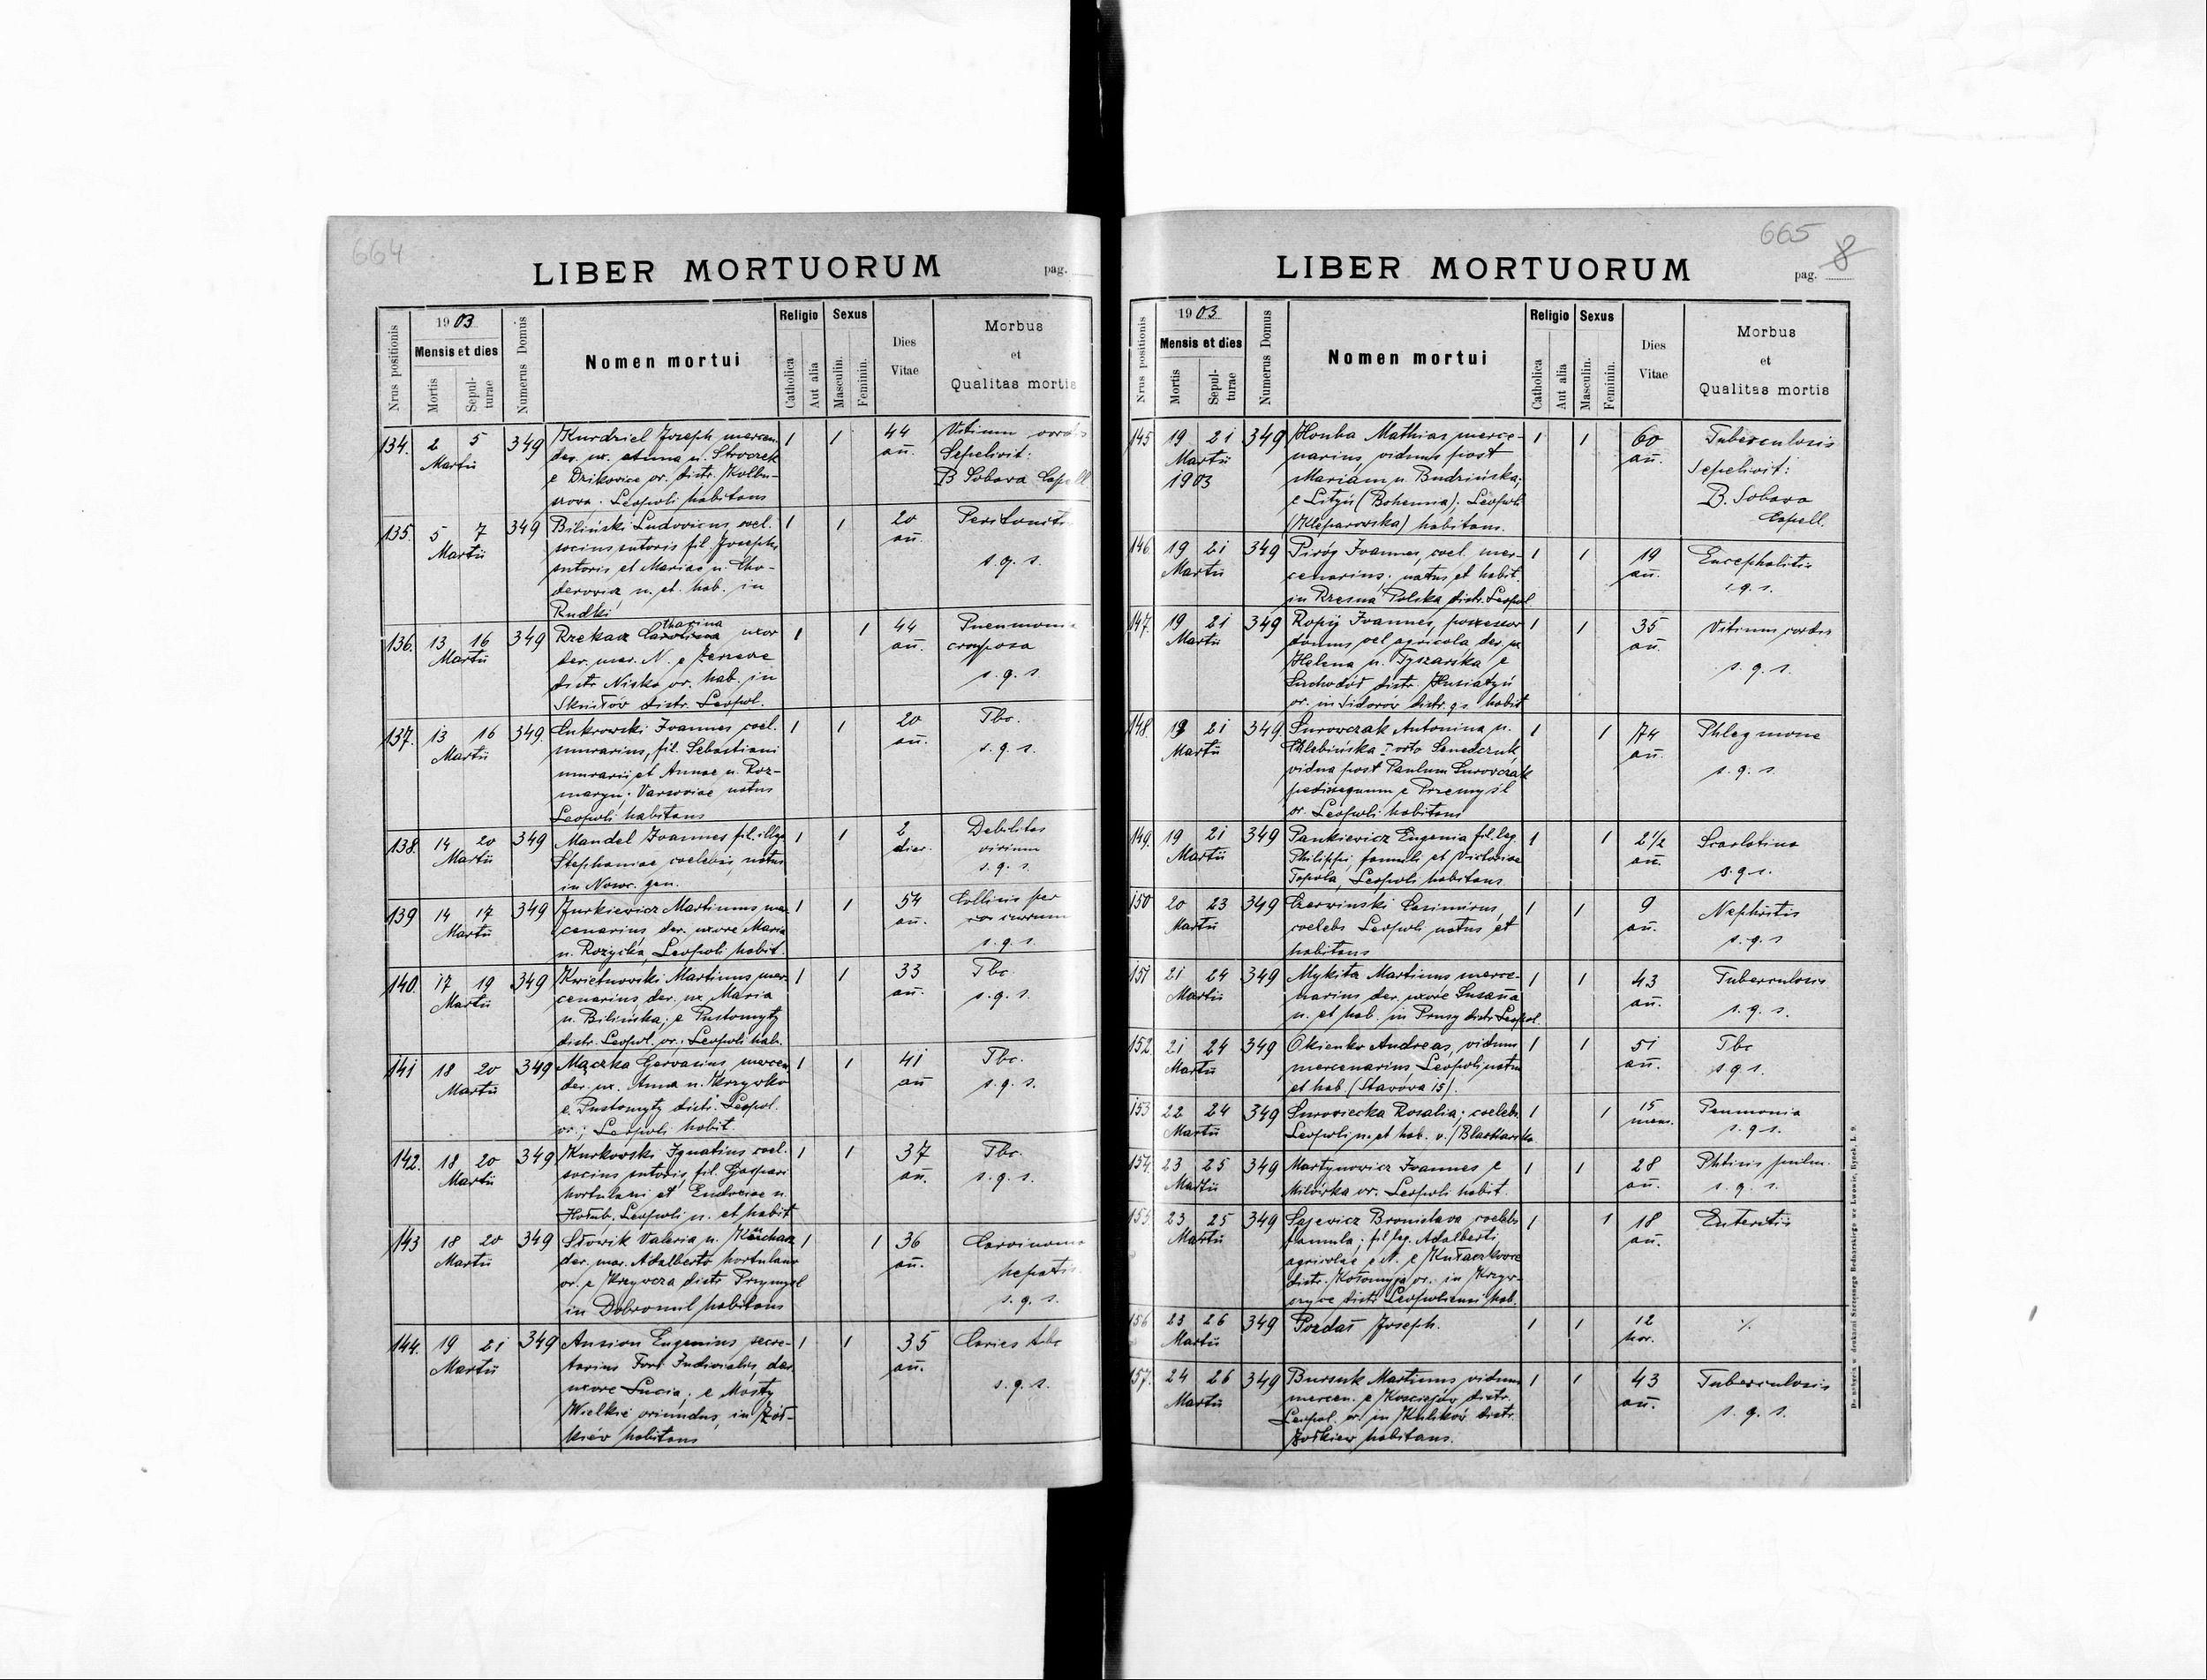 664
LIBER MORTUORUM
pag.
Nrus positionis
1903
Mensis et dies
Mortis
Sepulturae
Numerus Domus
Nomen mortui
Religio
Catholica
Aut alia
Sexus
Masculin.
Feminin.
Dies
Vitae
Morbus
et
Qualitas mortis
134. 2 5 349 Kurdziel Joseph mercen. 1 1 44 Vitium cordis
Martii der. ux. Anna n. Stroczek añ. Sepelivit:
e Dzikovice or. distr. Kolbu- B Sobava Capell
szova. Leopoli habitans
135. 5 7 349 Biliński Ludovicus, coel. 1 1 20 Peritonitis
Martii socius sutoris fil. Josephi añ.
sutoris et Mariae n. Cho- s. q. s.
derovia n. et. hab. in
Rudki
136. 13 16 349 Rzekacz Catharina uxor 1 1 44 Pneumonia
Martii der. mar. N. e añ. crouposa
distr Nisko or. hab. in s. q. s.
Skniłów distr. Leopol.
137. 13 16 349. Cukrowski Joannes coel. 1 1 20 Tbc.
Martii murarius, fil. Sebastiani añ. s. q. s.
murarii et Annae n. Roz-
maryn. Varsoviae natus
Leopoli habitans
138. 14 20 349 Mandel Joannes fil. illeg. 1 1 2 Debilitas
Martii Stephaniae coelebis, natus dier. virium
in Nosoc. gen. s. q. s.
139 14 17 349 Jurkiewicz Martinus mer- 1 1 54 Collisis per
Martii cenarius, der. uxore Maria añ. currum
n. Rozycka, Leopoli habit. s. q. s.
140. 17 19 349 Kwietnowski Martinus mer- 1 1 33 Tbc.
Martii cenarius, der. ux Maria añ. s. q. s.
n. Bilińska; e Pustomyty
distr. Leopol. or.: Leopoli hab.
141 18 20 349 Mączka Gervasius, mercen. 1 1 41 Tbc.
Martii der. ux. Anna n. Krzywko añ s. q. s.
e. Pustomyty distr. Leopol.
or.; Leopoli habit.
142. 18 20 349 Kurkowski Ignatius coel. 1 1 37 Tbc.
Martii socius sutoris, fil. Gaspari añ. s. q. s.
hortulani et Eudociae n.
Hołub. Leopoli n. et habit
143 18 20 349 Słowik Valeria n. 1 1 36 Carcinoma
Martii der. mar. Adalberto hortulano añ. hepatis
or. e Krzywcza distr. Przymysl s. q. s.
in Dobromil habitans
144. 19 21 349 Ansion Eugenius, secre- 1 1 35 Caries tbc
Martii tarius Fori Judicialis, der. añ.
uxore Lucia; e Mosty s. q. s.
Wielkie oriundus, in Żół-
kiew habitans
665
LIBER MORTUORUM
pag. 8
Nrus positionis
1903
Mensis et dies
Mortis
Sepulturae
Numerus Domus
Nomen mortui
Religio
Catholica
Aut alia
Sexus
Masculin.
Feminin.
Dies
Vitae
Morbus
et
Qualitas mortis
145 19 21 349 Houba Mathias merce- 1 1 60 Tuberculosis
Martii narius, viduus post añ. Sepelivit:
1903 Mariam n. Budzińska; B. Sobava
e Lityń (Bohemia); Leopoli Capell.
(Kleparowska) habitans.
146. 19 21 349 Piróg Joannes, coel. mer- 1 1 19 Encephalitis
Martii cenarius; natus et habit. añ. s. q. s.
in Rzesna Polska distr. Leopol
147. 19 21 349 Ropij Joannes, possessor 1 1 35 Vitium cordis
Martii domus vel agricola der. ux añ.
Helena n. Tyszarska e s. q. s.
Suchodół distr. Husiatyń
or. in Sidorów distr. q. s. habit
148. 19 21 349. Surowczak Antonina n. 1 1 74 Phlegmone
Martii Chlebińska orto Senedczuk añ.
vidua post Paulum Surowczak s. q. s.
pedissequum e Przemyśl
or. Leopoli habitans
149. 19 21 349 Pankiewicz Eugenia fil. leg. 1 1 2 1/2 Scarlatina
Martii Philippi, famuli et Victoriae añ.
Topola, Leopoli habitans s. q. s.
150 20 23 349 Czerwinski Casimirus, 1 1 9 Nephritis
Martii coelebs Leopoli natus et añ. s. q. s
habitans
151 21 24 349 Mykita Martinus merce- 1 1 43 Tuberculosis
Martii narius der. uxore Susaña añ. s. q. s.
n. et hab. in Prusy distr Leopol.
152. 21 24 349 Okienko Andreas, viduus 1 1 51 Tbc
Martii mercenarius, Leopoli natus añ. s q s.
et hab. (Starova 15).
153 22 24 349 Suroviecka Rosalia; coelebs 1 1 15 Pneumonia
Martii Leopoli n. et hab. v. (Blacharska mens. s. q s.
154. 23 25 349 Martynowicz Joannes e 1 1 28 Phtisis pulm.
Martii Milówka or. Leopoli habit. añ. s. q. s.
155. 23 25 349 Sajewicz Bronislava coelebs 1 1 18 Enteritis
Martii famula; fil leg. Adalberti añ.
agricolae e N. e Kułaczkowce
distr. Kołomyja or. in Krzyw-
czyce distr Leopoliensi hab.
156 23 26 349 Pozdał Joseph. 1 1 12 %
Martii hor.
157. 24 26 349 Bursuk Martinus viduus 1 1 43 Tuberculosis
Martii mercen. e Kosciejów distr. añ. s. q. s.
Leopol. or. in Kulików distr.
Żołkiew habitans.
w drukarni Szczęsnego Bednarskiego we Lwowie, Rynek, L. 9.